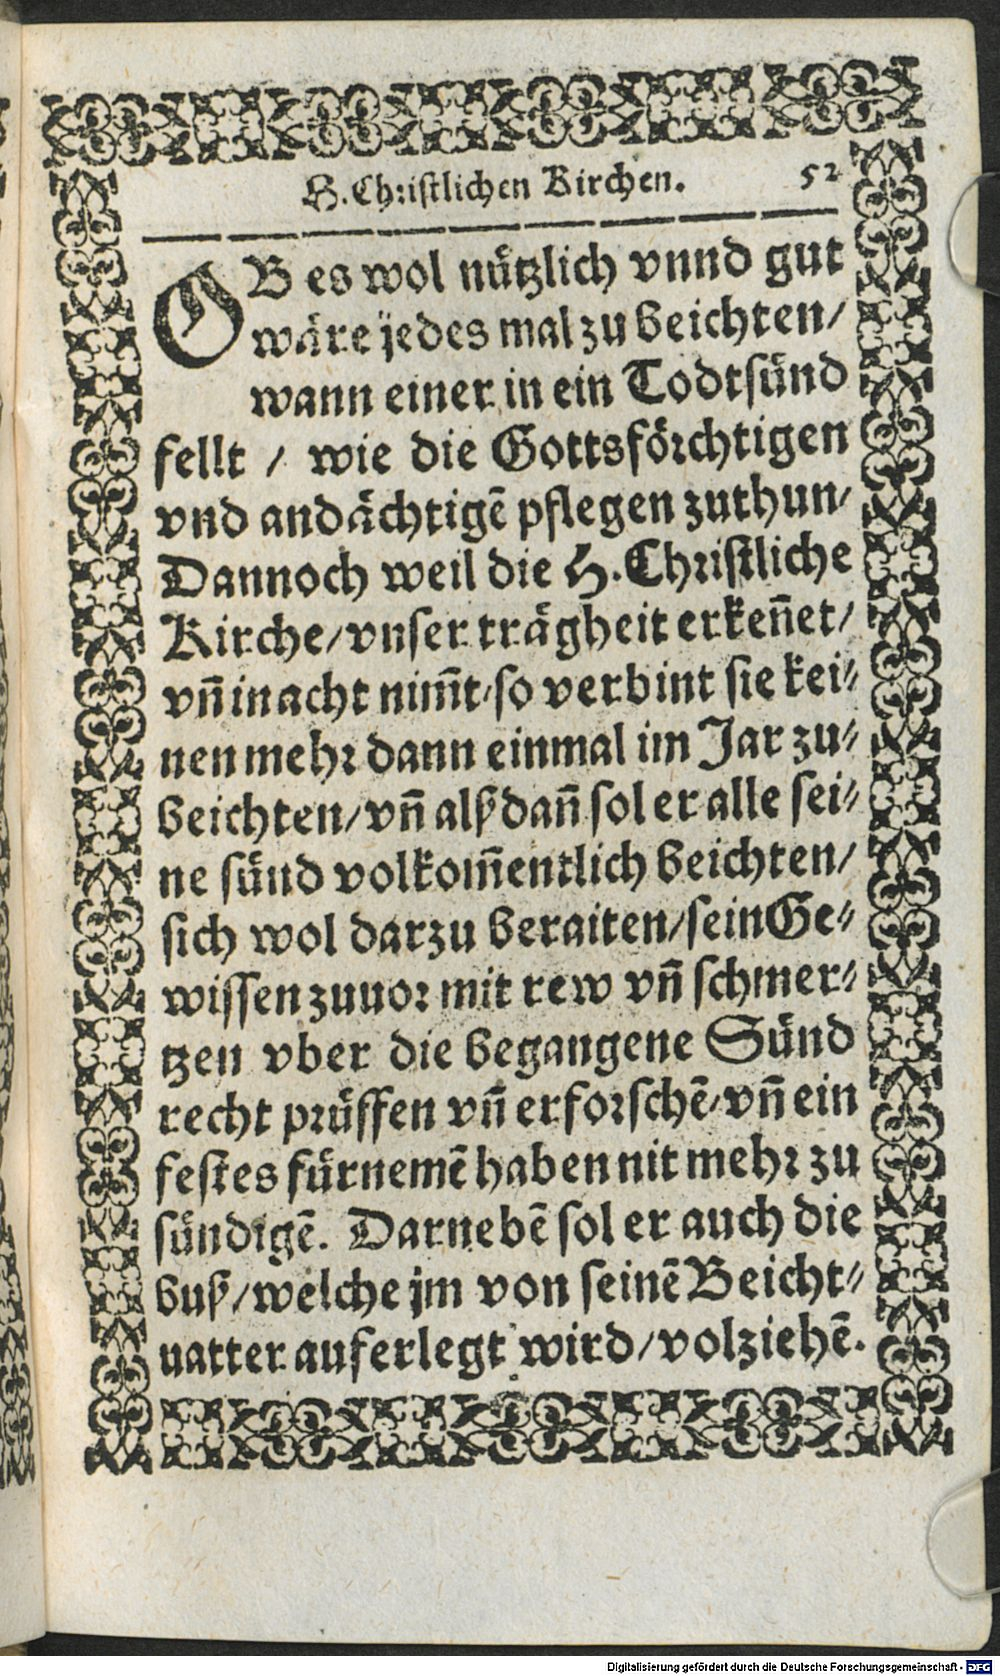 H. Christlichen Kirchen. 52
OB es wol nützlich vnnd gut
wäre jedes mal zu beichten/
wann einer in ein Todtsünd
fellt / wie die Gottsförchtigen
vnd andächtigē pflegen zuthun/
Dannoch weil die H. Christliche
Kirche/ vnser trägheit erkeñet/
vñ in acht nim̄t/ so verbint sie kei-
nen mehr dann einmal im Jar zu-
beichten/ vñ alß dañ sol er alle sei-
ne sünd volkom̄entlich beichten/
sich wol darzu beraiten/ sein Ge-
wissen zuuor mit rew vñ schmer-
tzen vber die begangene Sünd
recht prüffen vñ erforschē/ vñ ein
festes fürnemē haben nit mehr zu
sündigē. Darnebē sol er auch die
buß/ welche jm von seinē Beicht-
uatter auferlegt wird/ volziehē.
Digitalisierung gefördert durch die Deutsche Forschungsgemeinschaft - DFG